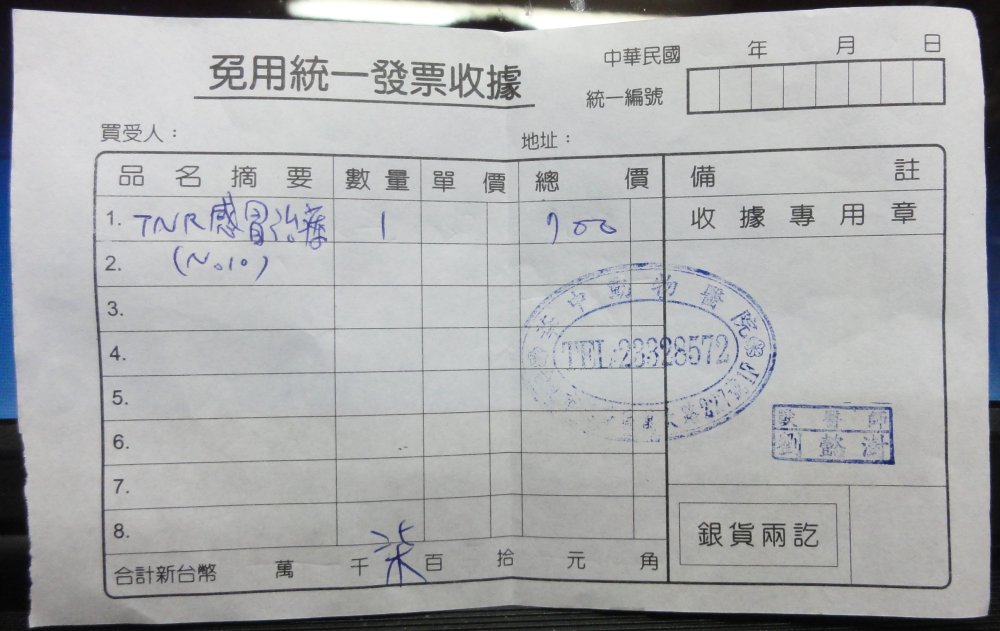 中華民國 年 月 日
免用統一發票收據
統一編號
買受人： 地址：
品名摘要 數量 單價 總價 備註
1. TNR感冒治療 1 700 收據專用章
2. (No.10)
3.
4.
5.
6.
7.
8.
中動物醫院
TEL:23328572
227
獸醫師
劉懿澍
合計新台幣 萬 千 柒百 拾 元 角
銀貨兩訖